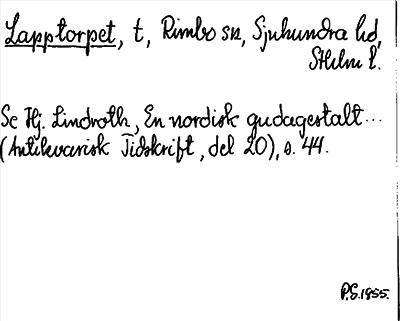 Lapptorpet, t, Rimbo sn, Sjuhundra hd,
Sthlm l.
Se Hj. Lindroth, En nordisk gudagestalt...
(Antikvarisk Tidskrift, del 20), s. 44.
P.S. 1955.